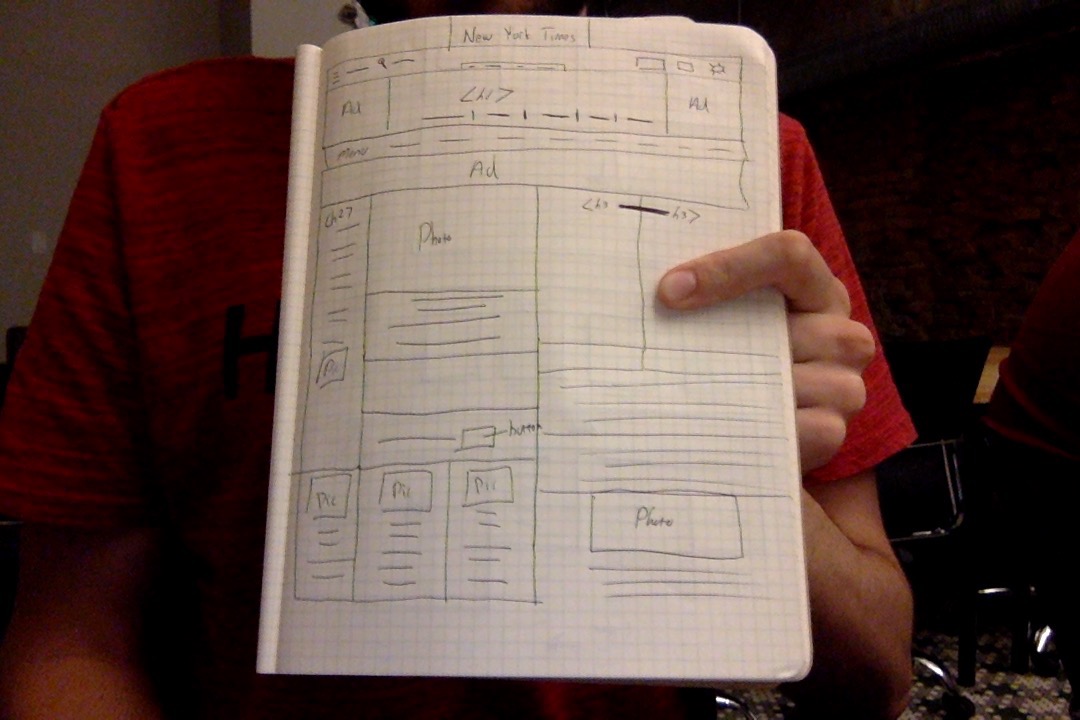 New York Times
Ad
<h1>
Ad
Menu
Ad
<h2>
Photo
<h3
h3>
Pic
button
Pic
Pic
Pic
Photo
H